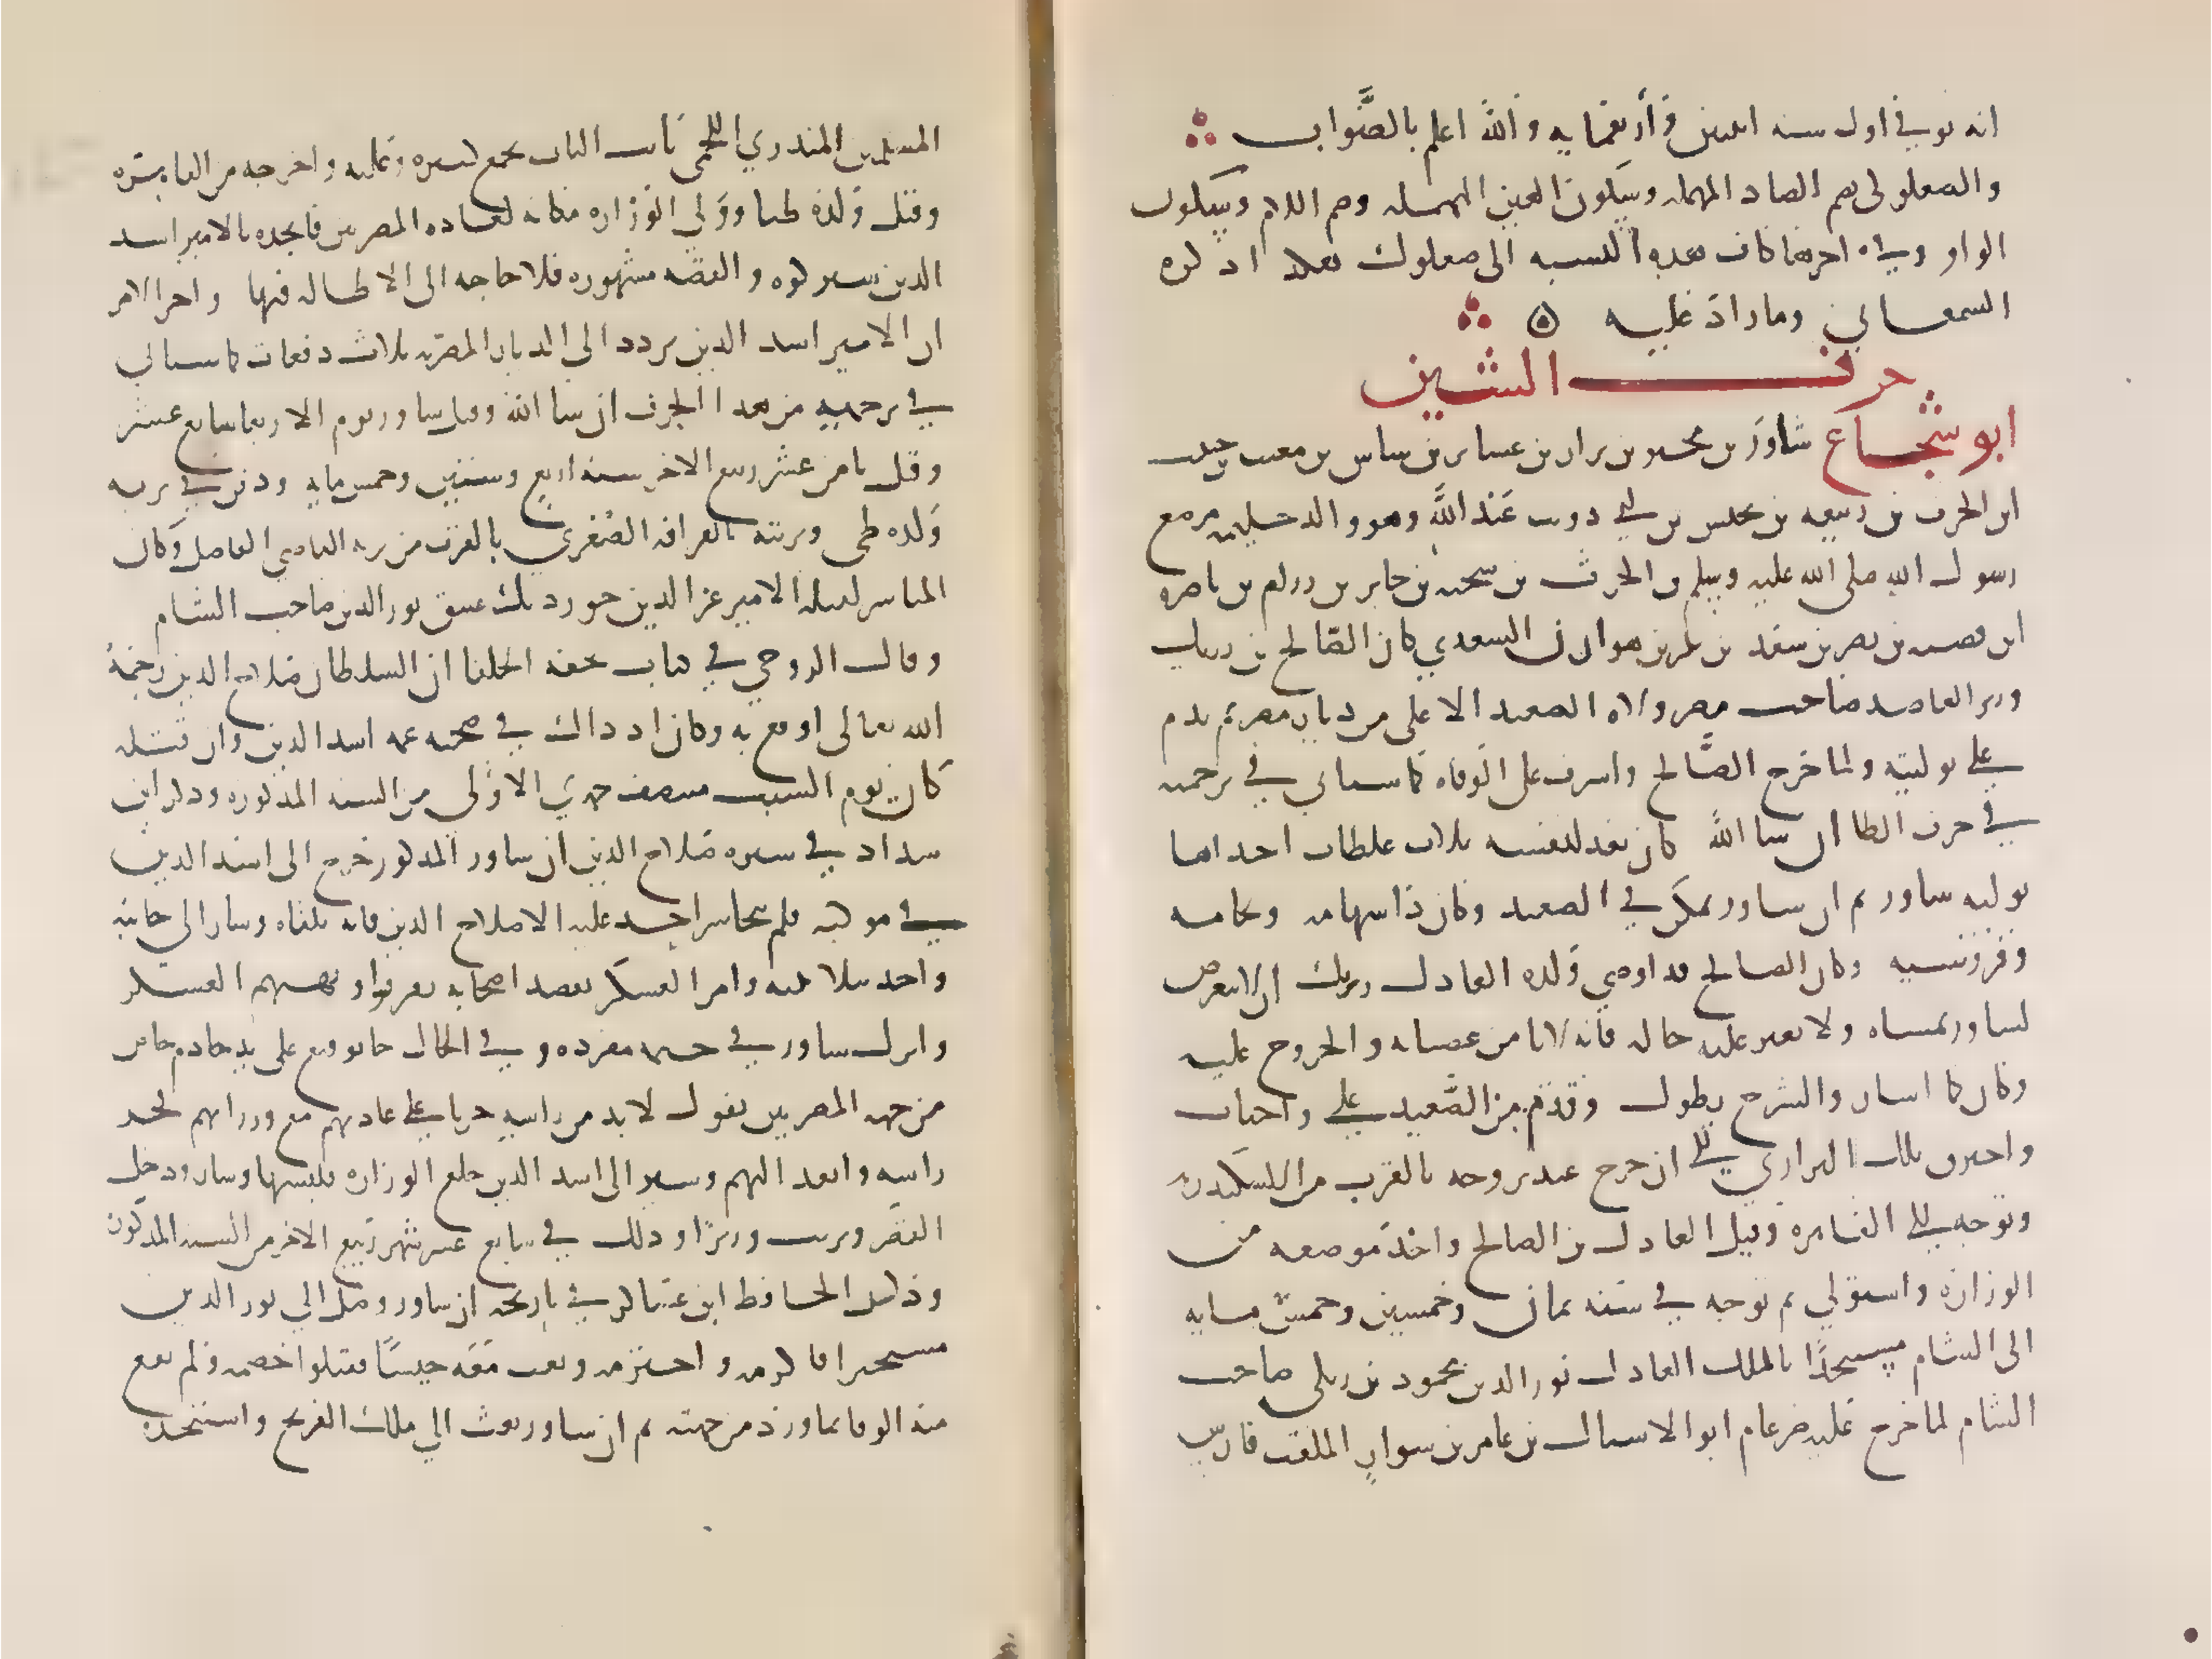 انه توفي في اول سنة اثنتين وأربعمايه والله اعلم بالصواب
والصعلوكي بضم الصاد المهمله وسكون العين المهمله وضم اللام وسكون
الواو وفي اخرها كاف هذه النسبه الى صعلوك هكذا ذكره
السمعاني وما زاد عليه
حرف الشين
ابو شجاع شاور بن مجير بن نزار بن عشاير بن شاس بن مغيث بن حبيب
ابن الحرث بن ربيعه بن يخنس بن ابي ذويب عبد الله وهو والد حليمه مرضع
رسول الله صلى الله عليه وسلم بن الحرث بن شجنه بن جابر بن رزام بن ناصره
ابن قصيه بن نصر بن سعد بن بكر بن هوازن السعدي كان الصالح بن رزيك
وزير العاضد صاحب مصر ولاه الصعيد الاعلى من ديار مصر ثم ندم
على توليته ولما خرج الصالح واشرف على الوفاه كما سياتي في ترجمته
في حرف الطا ان شا الله كان يعد لنفسه ثلاث غلطات احداها
توليه شاور ثم ان شاور تمكن في الصعيد وكان ذا شهامه ونجابه
وفروسيه وكان الصالح قد اوصى ولده العادل رزيك ان لا يتعرض
لشاور بمساه ولا يغير عليه حاله فانه لا يامن عصيانه والخروج عليه
وكان كما اشار والشرح يطول وقدم من الصعيد على واحات
واخترق تلك البراري الى ان خرج عند تروجه بالقرب من الاسكندريه
وتوجه الى القاهره وقتل العادل بن الصالح واخذ موضعه من
الوزاره واستولي ثم توجه في سنه ثمان وخمسين وخمس مايه
الى الشام مستنجدا بالملك العادل نور الدين محمود بن زنكي صاحب
الشام لما خرج عليه ضرغام ابو الاشبال بن عامر بن سوار الملقب فارس
المسلمين المنذري اللخمي نايب الباب بجمع كثيره وغلبه واخرجه من القاهره
وقتل ولده طيا وولي الوزاره مكانه لعاده المصريين فانجده بالامير اسد
الدين شيركوه والقصه مشهوره فلا حاجه الى الاطاله فيها واخر الامر
ان الامير اسد الدين تردد الى الديار المصريه ثلاث دفعات كما سياتي
في ترجمته من هذا الحرف ان شا الله وقتل شاور يوم الاربعا سابع عشر
وقيل ثامن عشر ربيع الاخر سنه اربع وستين وخمس مايه ودفن في تربه
ولده طي وتربته بالقرافه الصغري بالقرب من تربه القاضي الفاضل وكان
المباشر لقتله الامير عز الدين جورديك عتيق نور الدين صاحب الشام
وقال الروحي في كتاب تحفه الخلفا ان السلطان صلاح الدين رحمه
الله تعالى اوقع به وكان اذ ذاك في صحبه عمه اسد الدين وان قتله
كان يوم السبت منتصف جمدي الاولى من السنه المذكوره وذكر ابن
شداد في سيره صلاح الدين ان شاور المذكور خرج الى اسد الدين
في موكبه فلم يتجاسر احد عليه الا صلاح الدين فانه تلقاه وسار الى جانبه
واخذ بتلابيبه وامر العسكر بقصد اصحابه ففروا ونهبهم العسكر
وانزل شاور في خيمه مفرده وفي الحال جا توقيع على يد خادم خاص
من جهه المصريين يقول لا بد من راسه جريا على عادتهم مع وزرايهم فحز
راسه وانفذ اليهم وسير الى اسد الدين خلع الوزاره فلبسها وسار ودخل
القصر وترتب وزيرا وذلك في سابع عشر شهر ربيع الاخر من السنه المذكوره
وذكر الحافظ ابن عساكر في تاريخه ان شاور وصل الي نور الدين
مستجيرا فاكرمه واحترمه وبعث معه جيشا فقتلوا خصمه ولم يقع
منه الوفا بما ورد من جهته ثم ان شاور بعث الي ملك الفرنج واستنجده